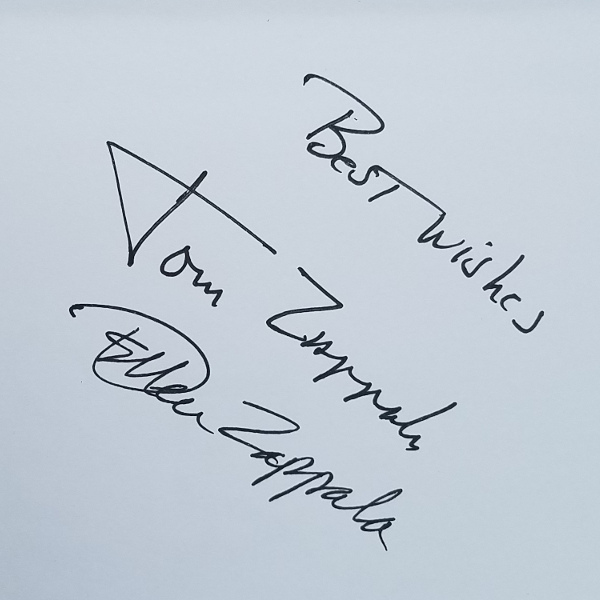 Best Wishes
Tom Zappala
Ellen Zappala